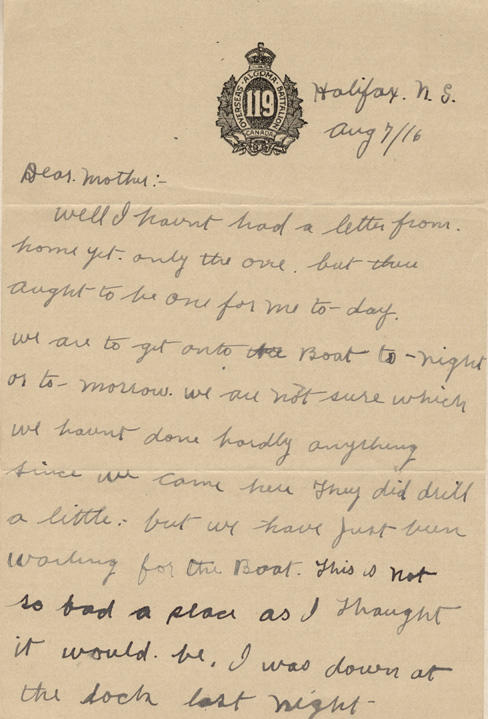 OVERSEAS · ALGOMA · BATTALION
119
CANADA
Halifax. N. S.
Aug 7/16
Dear. Mother:-
Well I havnt had a letter from.
home yet. only the one. but thee
aught to be one for me to-day.
we are to get onto the Boat to-night
or to-morrow. we are not sure which
we havnt done hardly anything
since we came here They did drill
a little:- but we have Just been
waiting for the Boat. This is not
so bad a place as I thaught
it would. be. I was down at
the dock last night-